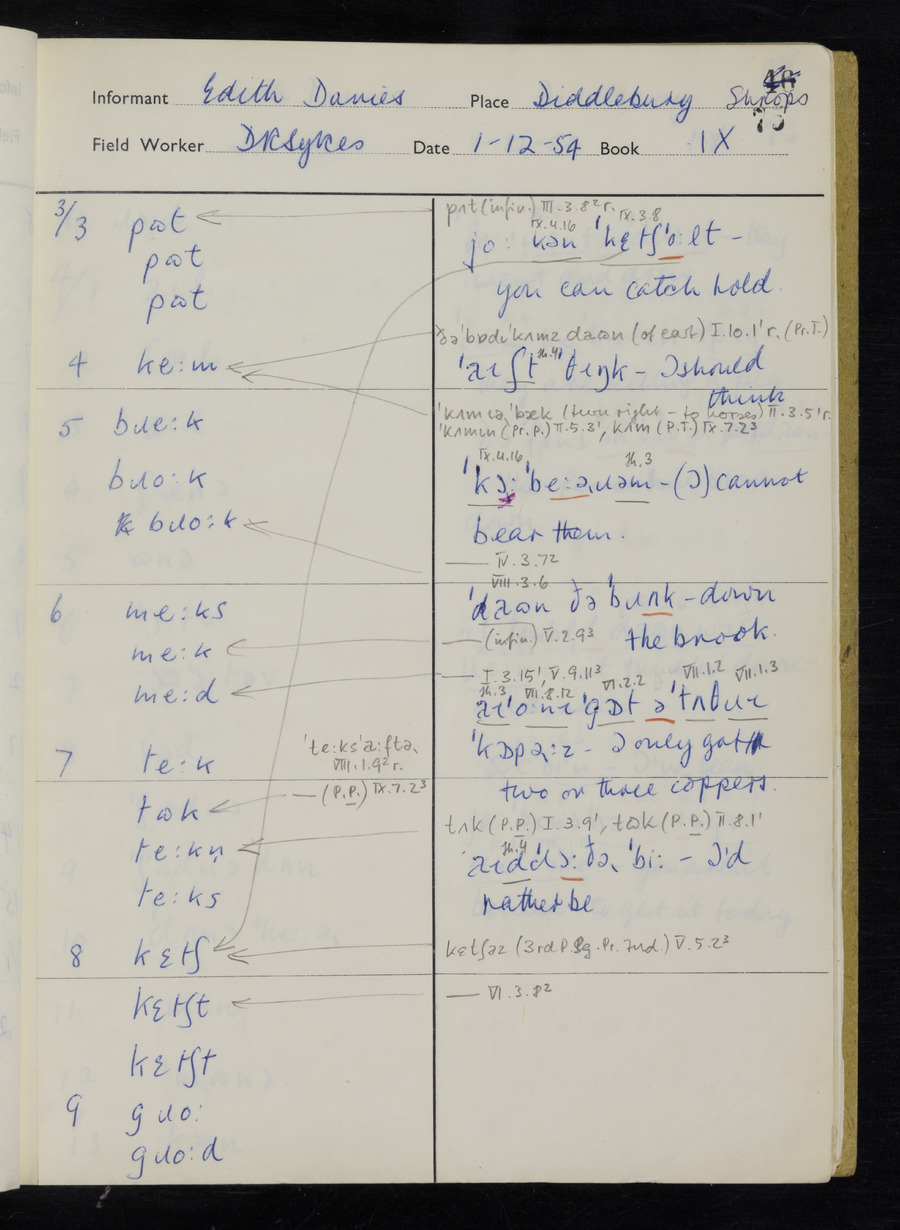 Informant Edith Davies Place Diddlebury Shrops
Field Worker DRSykes Date 1-12-54 Book IX
3/3 pɷt
pɷt
pɷt
4 ke:m
5 bɹe:k
bɹo:k
bɹo:k
6 me:ks
me:k
me:d
7 te:k
'te:ks'a:ftə
VIII.1.9² r.
— (P.P.) IX.7.2³
tɷk
te:kn̩
te:ks
8 kɛtʃ
kɛtʃt
kɛtʃt
9 gɹo:
gɹo:d
pʌt (infin.) III.3.8² r. IX.3.8
IX.4.16
jo: kən 'kɛtʃ 'o:lt –
you can catch hold.
ðə 'bɒdɪ 'kʌmz daɷn (of cart) I.10.1' r. (Pr.T.)
'aɪ ʃt 'θɪŋk – I should
think
'kʌm ɪə 'bæk (turn right – to horses) II.3.5' r.
'kʌmɪn (Pr.P.) II.5.3', kʌm (P.T.) IX.7.2³
IX.4.16 th.3
'kɔ: 'be:əɹəm – (I) cannot
bear them.
— IV.3.72
VIII.3.6
'daɷn ðə 'bɹʌk – down
the brook.
— (infin.) V.2.9³
— I.3.15', V.9.11³
th.3 VII.8.12 VI.2.2 VII.1.2 VII.1.3
aɪ 'o:nɪ 'gɒt ə 'tʌθɹɪ
'kɒpə:z – I only got
two or three coppers.
tʌk (P.P.) I.3.9', tɷk (P.P.) II.8.1'
th.4
aɪd dɔ:ðə 'bi: – I'd
rather be
kɛtʃəz (3rd P.Sg.Pr.Ind.) V.5.2³
— VI.3.8²